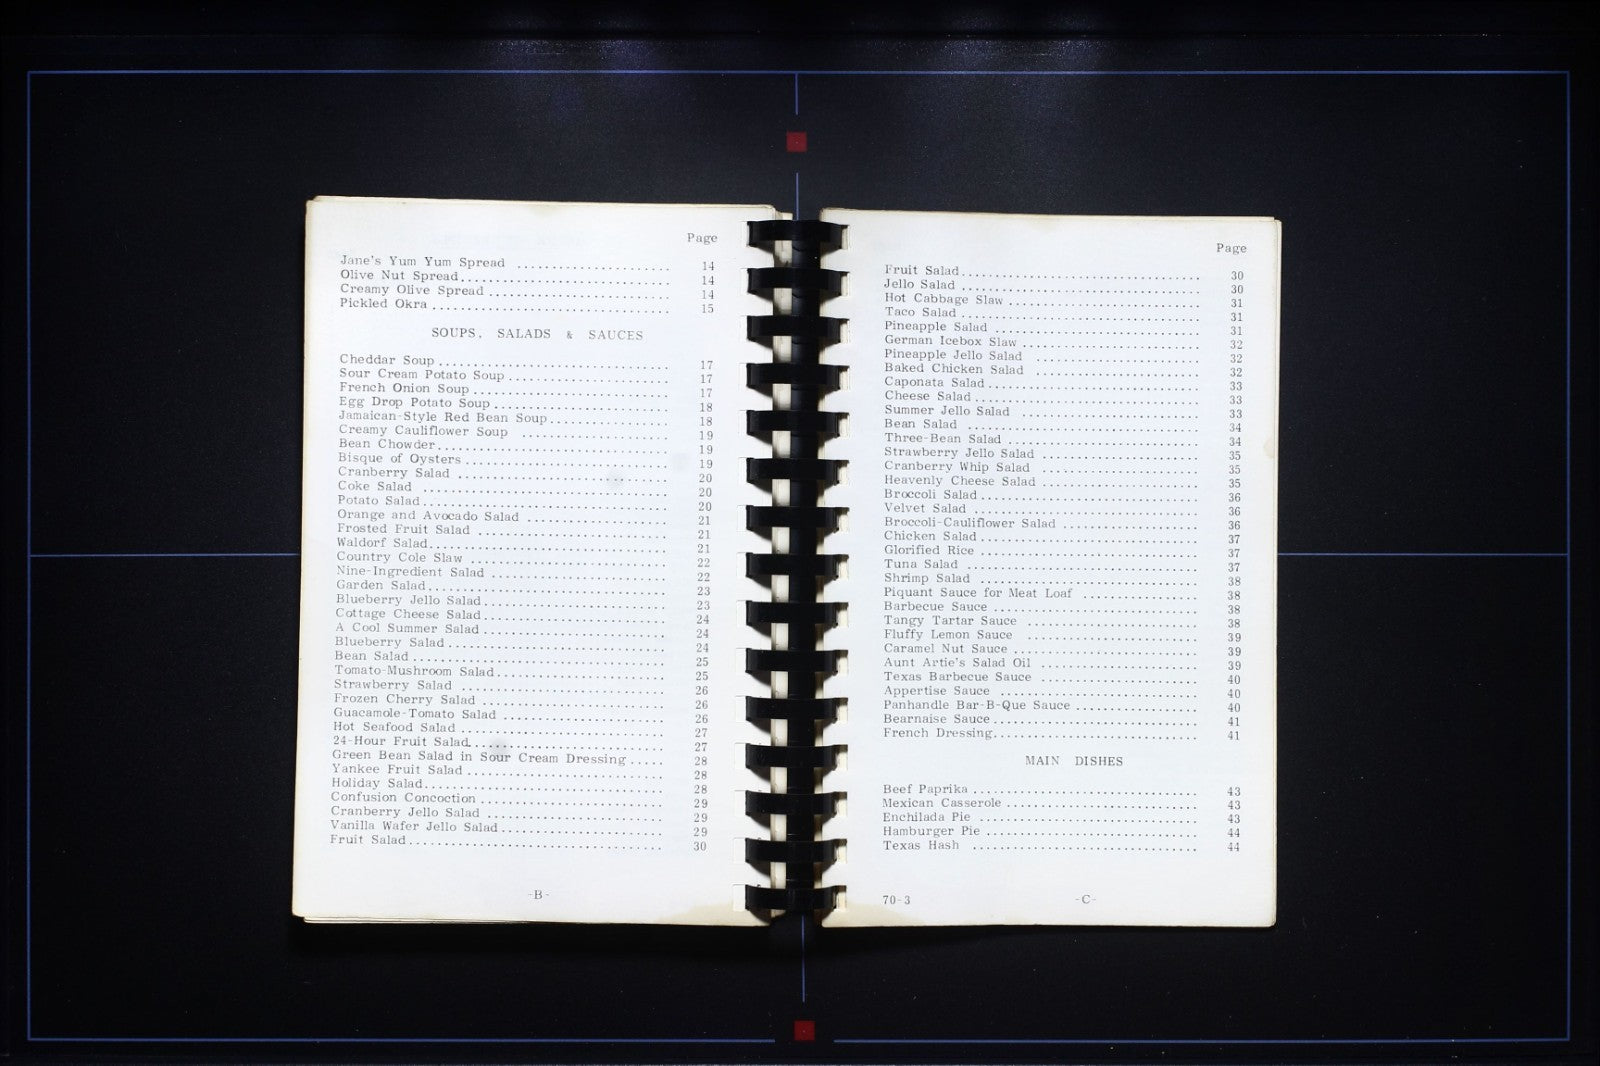 Page
Jane's Yum Yum Spread ....................... 14
Olive Nut Spread.............................. 14
Creamy Olive Spread .......................... 14
Pickled Okra ................................. 15
SOUPS, SALADS & SAUCES
Cheddar Soup ................................. 17
Sour Cream Potato Soup ....................... 17
French Onion Soup ............................ 17
Egg Drop Potato Soup ......................... 18
Jamaican-Style Red Bean Soup.................. 18
Creamy Cauliflower Soup ...................... 19
Bean Chowder.................................. 19
Bisque of Oysters ............................ 19
Cranberry Salad .............................. 20
Coke Salad ................................... 20
Potato Salad.................................. 20
Orange and Avocado Salad ..................... 21
Frosted Fruit Salad .......................... 21
Waldorf Salad................................. 21
Country Cole Slaw ............................ 22
Nine-Ingredient Salad ........................ 22
Garden Salad.................................. 23
Blueberry Jello Salad......................... 23
Cottage Cheese Salad.......................... 24
A Cool Summer Salad .......................... 24
Blueberry Salad .............................. 24
Bean Salad ................................... 25
Tomato-Mushroom Salad......................... 25
Strawberry Salad ............................. 26
Frozen Cherry Salad .......................... 26
Guacamole-Tomato Salad ....................... 26
Hot Seafood Salad ............................ 27
24-Hour Fruit Salad........................... 27
Green Bean Salad in Sour Cream Dressing ..... 28
Yankee Fruit Salad ........................... 28
Holiday Salad................................. 28
Confusion Concoction ......................... 29
Cranberry Jello Salad ........................ 29
Vanilla Wafer Jello Salad..................... 29
Fruit Salad................................... 30
-B-
Page
Fruit Salad................................... 30
Jello Salad .................................. 30
Hot Cabbage Slaw ............................. 31
Taco Salad ................................... 31
Pineapple Salad .............................. 31
German Icebox Slaw ........................... 32
Pineapple Jello Salad ........................ 32
Baked Chicken Salad .......................... 32
Caponata Salad ............................... 33
Cheese Salad ................................. 33
Summer Jello Salad ........................... 33
Bean Salad ................................... 34
Three-Bean Salad ............................. 34
Strawberry Jello Salad ....................... 35
Cranberry Whip Salad ......................... 35
Heavenly Cheese Salad ........................ 35
Broccoli Salad ............................... 36
Velvet Salad ................................. 36
Broccoli-Cauliflower Salad ................... 36
Chicken Salad ................................ 37
Glorified Rice ............................... 37
Tuna Salad ................................... 37
Shrimp Salad ................................. 38
Piquant Sauce for Meat Loaf .................. 38
Barbecue Sauce ............................... 38
Tangy Tartar Sauce ........................... 38
Fluffy Lemon Sauce ........................... 39
Caramel Nut Sauce ............................ 39
Aunt Artie's Salad Oil ....................... 39
Texas Barbecue Sauce ......................... 40
Appertise Sauce .............................. 40
Panhandle Bar-B-Que Sauce .................... 40
Bearnaise Sauce............................... 41
French Dressing............................... 41
MAIN DISHES
Beef Paprika ................................. 43
Mexican Casserole ............................ 43
Enchilada Pie ................................ 43
Hamburger Pie ................................ 44
Texas Hash ................................... 44
70-3 -C-